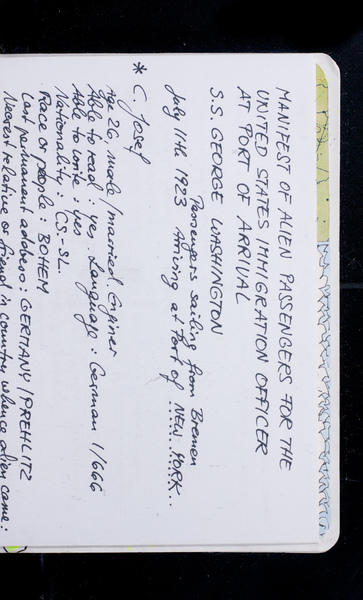 MANIFEST OF ALIEN PASSENGERS FOR THE
UNITED STATES IMMIGRATION OFFICER
AT PORT OF ARRIVAL
S.S. GEORGE WASHINGTON
Passengers sailing from Bremen
July 11th 1923 Arriving at Port of NEW YORK
* C. Josef
Age 26, male/married.
Able to read : yes. Language : German 1/666
Able to write : yes
Nationality : CS-SL.
Race or people : BOHEM
Last permanent address : GERMANY/PREHLITZ
Nearest relative or friend in country whence alien came :